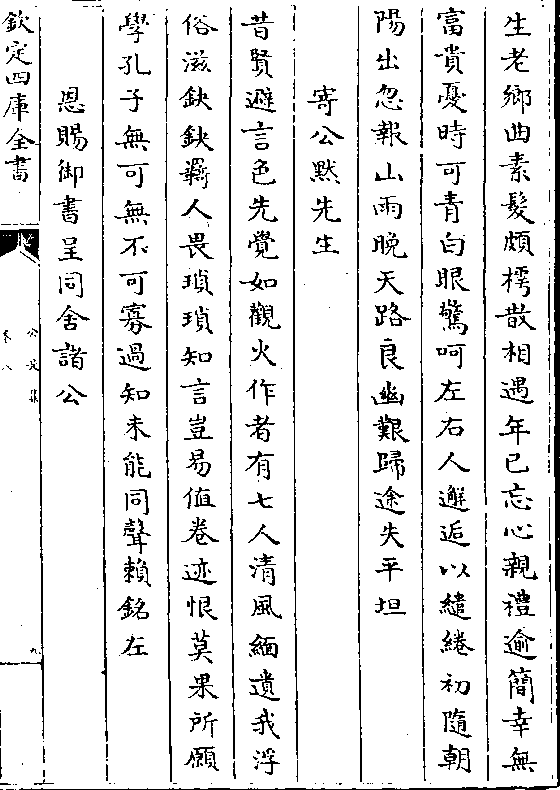 生老鄉曲素髮頗樗散相遇年已忘心親禮逾簡幸無
富貴憂時可青白眼驚呵左右人邂逅以繾綣初隨朝
陽出忽報山雨晚天路良幽艱歸途失平坦
寄公默先生
昔賢避言色先覺如觀火作者有七人清風緬遺我浮
俗滋鈌鈌覊人畏瑣瑣知言豈易值卷迹恨莫果所願
學孔子無可無不可寡過知未能同聲賴銘左
恩賜御書呈同舍諸公
欽定四庫全書
卷八
九